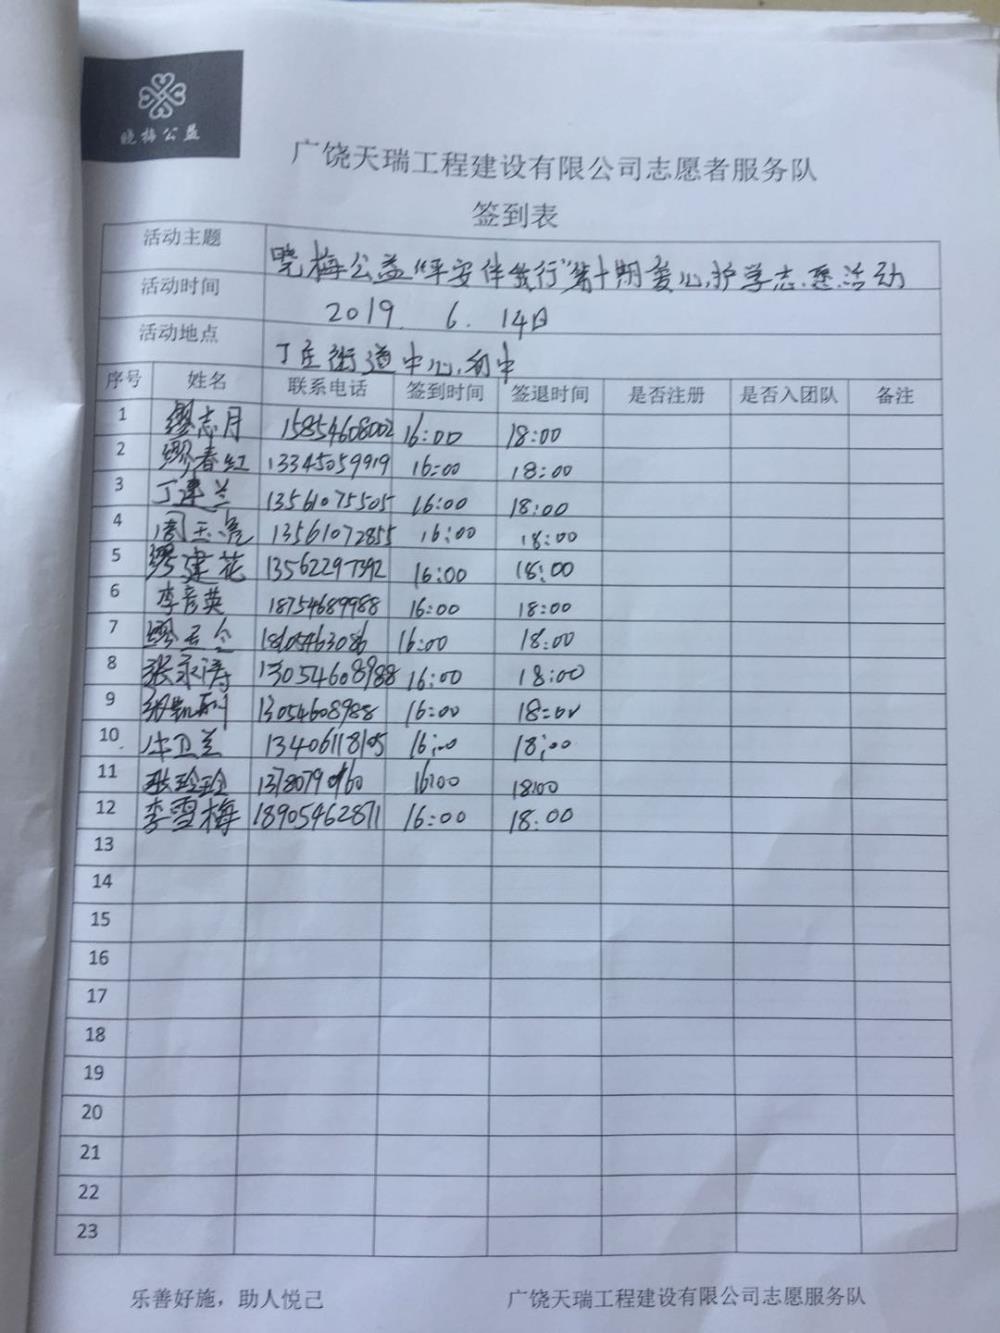 晓梅公益
广饶天瑞工程建设有限公司志愿者服务队
签到表
活动主题 晓梅公益“平安伴我行”第十期爱心护学志愿活动
活动时间 2019. 6. 14日
活动地点 丁庄街道中心初中
序号 姓名 联系电话 签到时间 签退时间 是否注册 是否入团队 备注
1 缪志月 15854608002 16:00 18:00
2 缪春红 13345059919 16:00 18:00
3 丁建兰 13561075505 16:00 18:00
4 周玉 13561072855 16:00 18:00
5 缪建花 13562297392 16:00 18:00
6 李彦英 18754689988 16:00 18:00
7 缪 18605463086 16:00 18:00
8 张永涛 13054608988 16:00 18:00
9 13054608988 16:00 18:00
10 卫兰 13406118105 16:00 18:00
11 玲玲 16:00 18:00
12 李雪梅 18905462871 16:00 18:00
13
14
15
16
17
18
19
20
21
22
23
乐善好施，助人悦己 广饶天瑞工程建设有限公司志愿服务队